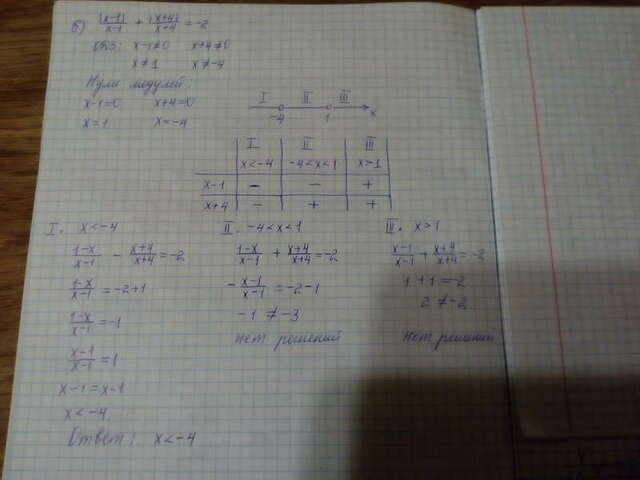 б) |x-1|/x-1 + |x+4|/x+4 = -2
ОДЗ: x-1≠0 x+4≠0
x≠1 x≠-4
Нули модулей:
x-1=0 x+4=0
x=1 x=-4
I II III
-4 1 x
I II III
x<-4 -4<x<1 x>1
x-1 - - +
x+4 - + +
I. x<-4
1-x/x-1 - x+4/x+4 = -2
1-x/x-1 = -2+1
1-x/x-1 = -1
x-1/x-1 = 1
x-1=x-1
x<-4
Ответ: x<-4
II. -4<x<1
1-x/x-1 + x+4/x+4 = -2
- x-1/x-1 = -2-1
-1 ≠ -3
нет решений
III. x>1
x-1/x-1 + x+4/x+4 = -2
1+1=-2
2 ≠ -2
нет решений